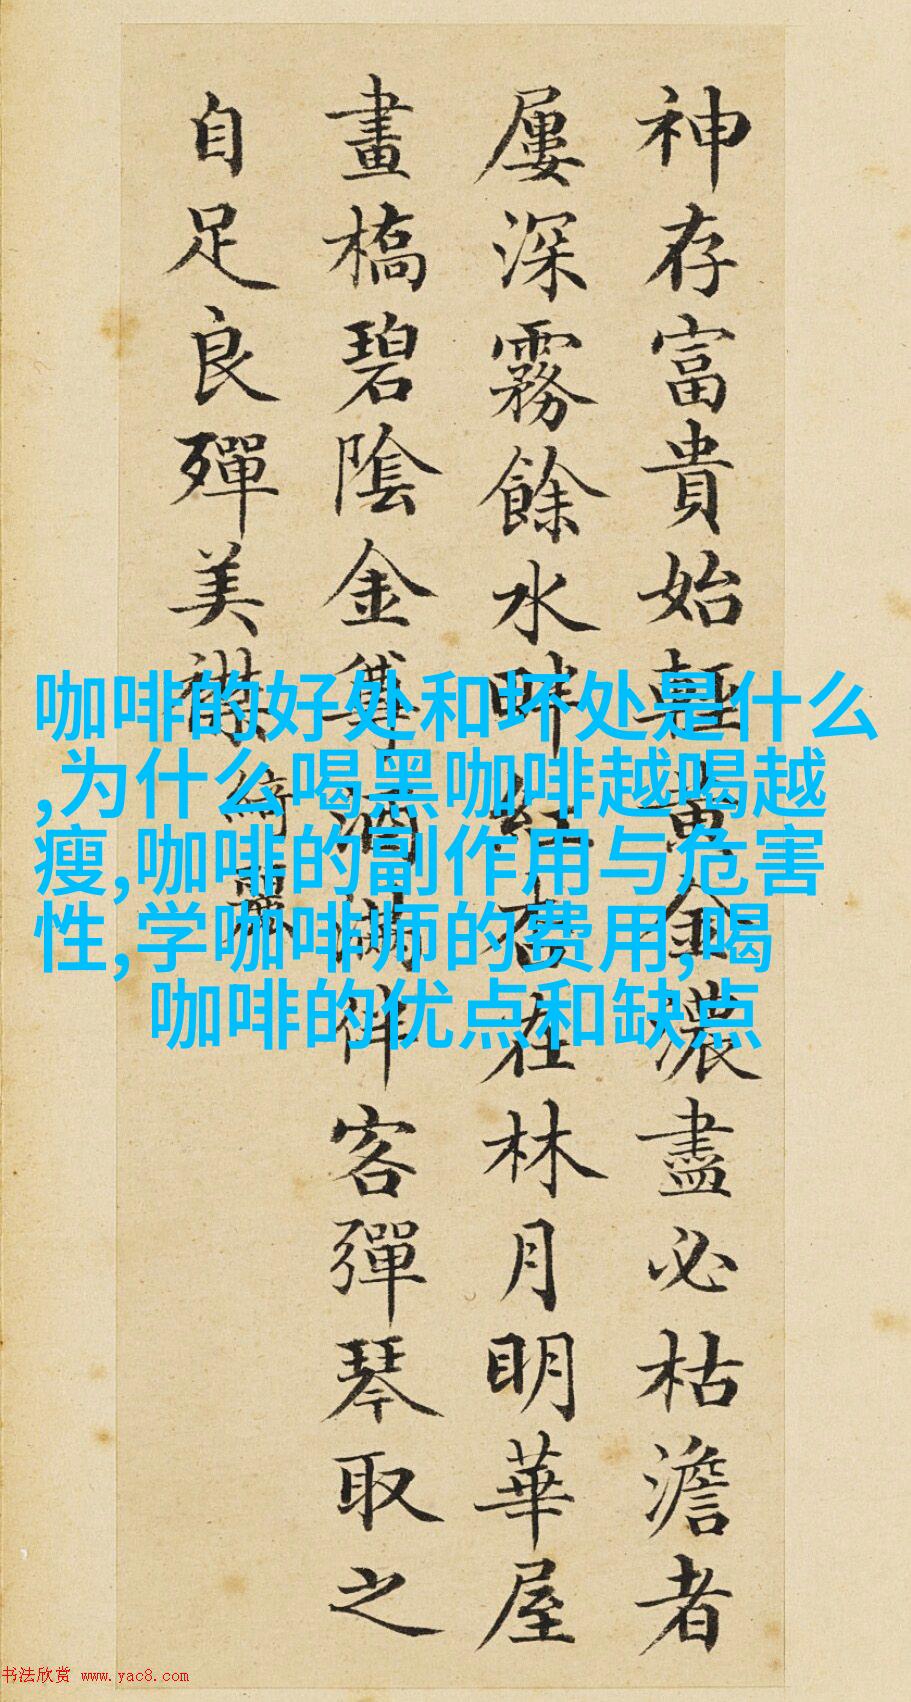 神存富貴始輕黄金濃盡必枯澹者
屢深霧餘水畔紅杏在林月明華屋
畫橋碧陰金尊酒滿伴客彈琴取之
自足良殫美襟
綺麗
咖啡的好处和坏处是什么
,为什么喝黑咖啡越喝越
瘦,咖啡的副作用与危害
性,学咖啡师的费用,喝
咖啡的优点和缺点
书法欣赏 www.yac8.com